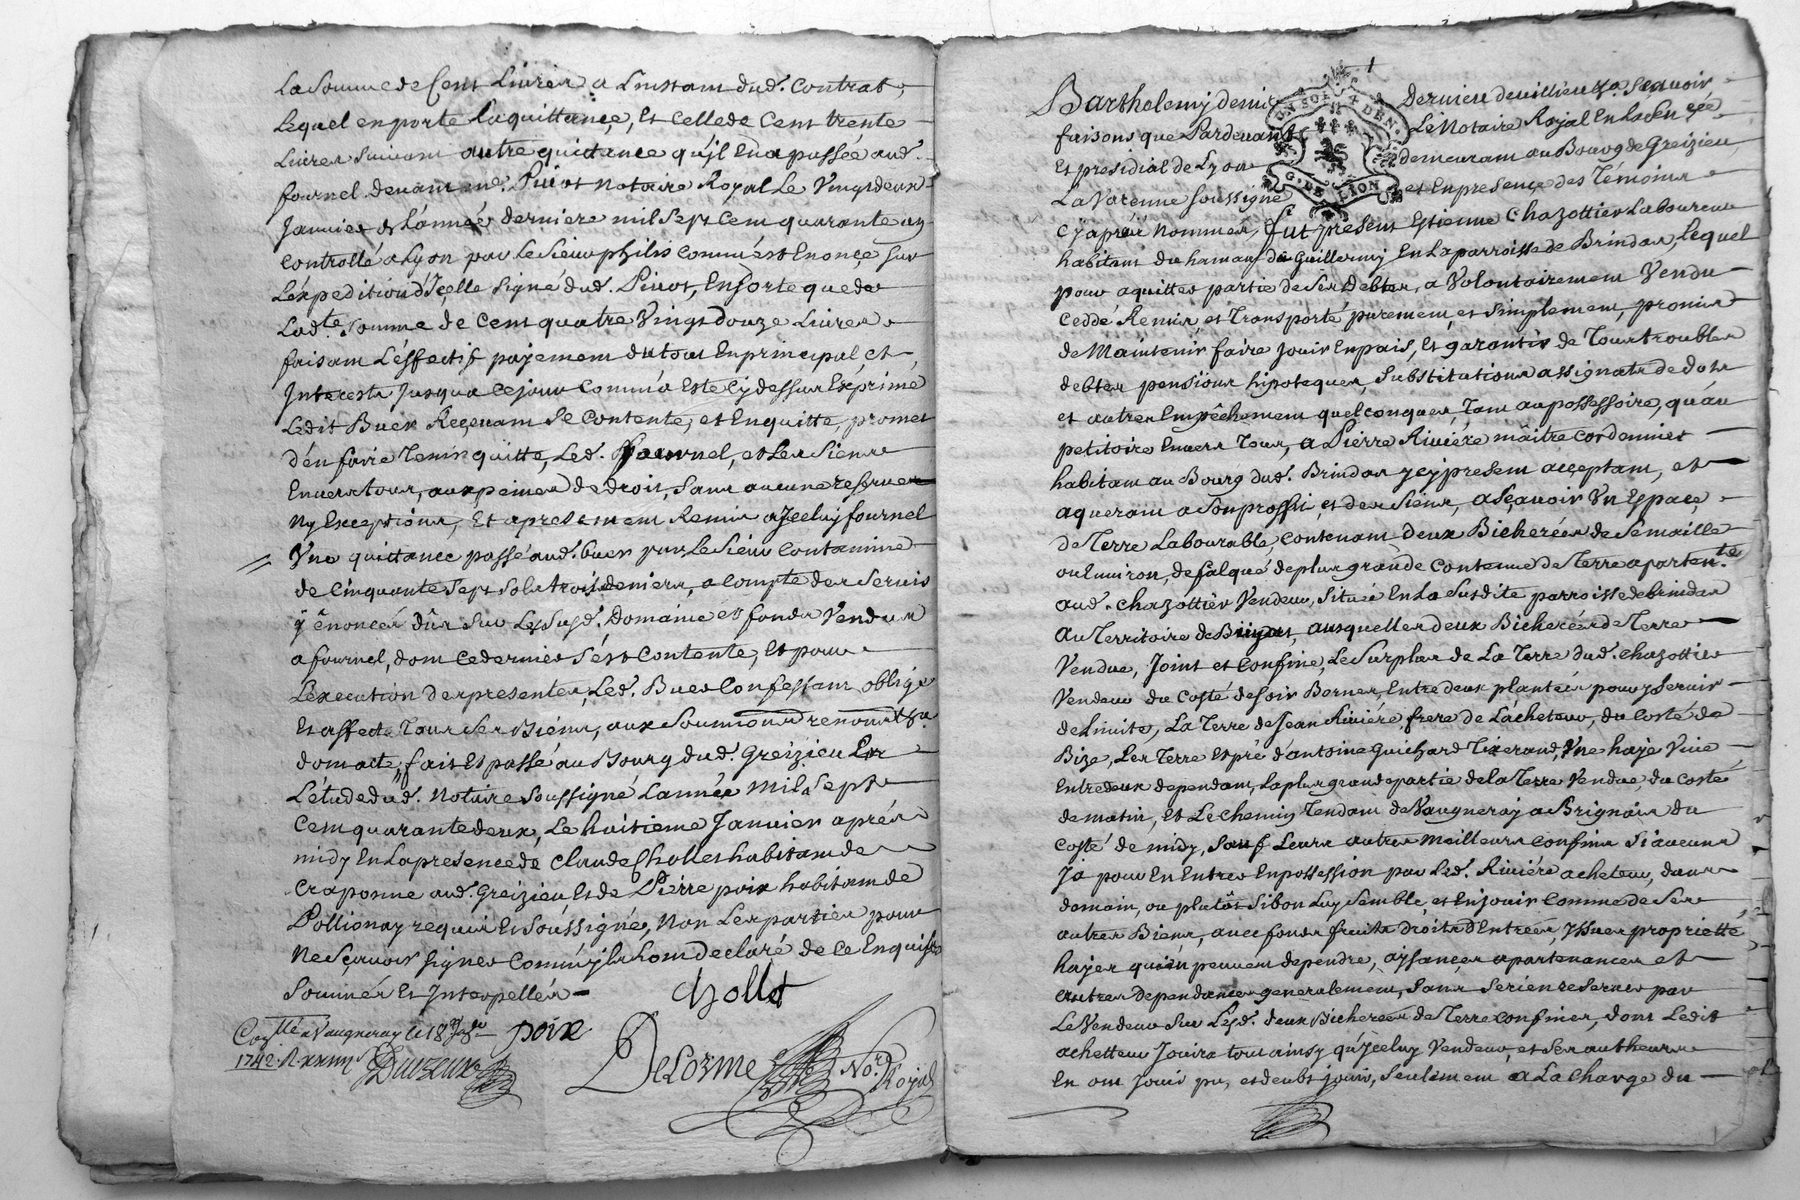 La Somme de Cent Livres a Linstant dud. Contrat
Lequel en porte Laquittance, Et Celle de Cent trente
Livres Suivant autre quittance qu'jl En a passée aud.
fournel devant me. Pitiot Notaire Royal Le Vingt deux
Janvier de L'année derniere mil Sept Cent quarante un
Controllé a Lyon par Le Sieur philis Comme est Enoncé Sur
L'expedition d'Jcelle Signé dud. Pitiot, En Sorte que de
Ladte. Somme de Cent quatre Vingt douze Livres
faisant L'éffectif payement du tout En principal, et
Jnterests Jusqua Ce jour Comm'a Esté Cy dessus Exprimé
Ledit Buer Reçevant Se Contente, et En quitte, promet
d'en faire Tenir quitte, Led. fournel, et Les Siens
Envers tous, aux peines de droit, Sans aucune reserve
Ny Exceptions, Et a presentement Remis a Jceluy fournel
Vne quittance passé aud. buer par Le Sieur Contamine
de Cinquante Sept Sols trois deniers, a Compte des Servis
y énoncés dûs Sur Les Susd. Domaine et fonds Vendus
a fournel, dont Ce dernier S'est Contenté, Et pour
L'execution des presentes, Led. Buer Confessant oblige
Et affecte Tous Ses Biens, aux Soumions renonons &a
dont acte, fait Et passé au Bourg dud. Greizieu En
L'étude dud. Notaire Soussigné L'année Mil Sept
Cent quarante deux, Le huitieme Janvier après
midy En La presence de Claude Chollet habitant de
Craponne aud. Greizieu Et de Pierre poix habitant de
Pollionay requis Et Soussignés, Non Les parties pour
Ne Sçavoir Signer Comm'jls hont declaré de Ce Enquises
Sommés Et Jnterpellés
Chollet
Conllé a Vaugneray le 18 Jer poix
1742. R. xxiiii s Duizeux
Delorme Nore. Royal
Bartholemy deni Dernieu de villieu &a. Scavoir
faisons que Pardevant Le Notaire Royal En La Senée
Et presidial de Lyon demeurant au Bourg de Greizieu
La Varenne Soussigné et En presence des Témoins
Cy après Nommés, fut present Estienne Chazottier Laboureur
habitant du hamau de Guillermy En La parroisse de Brindas, Lequel
pour aquitter partie de Ses debtes, a Volontairement Vendu
Ceddé Remis, et Transporté purement, et Simplement, promis
de Maintenir faire Jouir En pais, Et garantir de Tous troubles
debtes pensions hipoteques, Substitutions assignats de dots
et autres Empêchement quelconques, Tant au possessoire, qu'au
petitoire Envers Tous, a Pierre Riviére maitre Cordonnier
habitant au Bourg dud. Brindas y cy present acceptant, et
aquerant a Son proffit, et des Siens, a Sçavoir Vn Espace
de Terre Labourable, Contenant deux Bicherées de Semaille
ou Environ, defalqué de plus grande Contenue de Terre aparten.te
aud. Chazottier Vendeur, Située En La Susdite parroisse de brindas
au Territoire de ausquelles deux Bicherées de Terre
Vendue, Joint et Confine, Le Surplus de La Terre dud. Chazottier
Vendeur du Costé de Soir Bornes, Entre deux plantées pour y Servir
de Limite, La Terre de Jean Riviére, frere de L'acheteur, du Costé de
Bize, Les Terre Et pré d'antoine Guichard Tixerand, Vne haye Vive
Entre deux dependant, La plus grande partie de la Terre Vendue, du Costé
de matin, Et Le Chemin Tendant de Vaugneray a Brignais du
Costé de midy, Sauf Leurs autres Meilleurs Confins Si aucuns
Ja pour En Entrer En possession par Led. Riviére acheteur, dans
demain, ou plutôt Si bon Luy Semble, et En jouir Comme de Ses
autres Biens, avec fonds fruits Droits d'Entrées, Yssues proprietté
hayes qui en peuvent dependre, aysances apartenances et
autres dependances generalement, Sans Se rien reserver par
Le Vendeur Sur Lesd. deux Bicherées de Terre Confinées, dont Ledit
achetteur Jouira tout ainsy qu'Jceluy Vendeur, et Ses autheurs
En ont Jouis pu, et deubt jouir, Seulement a La Charge du